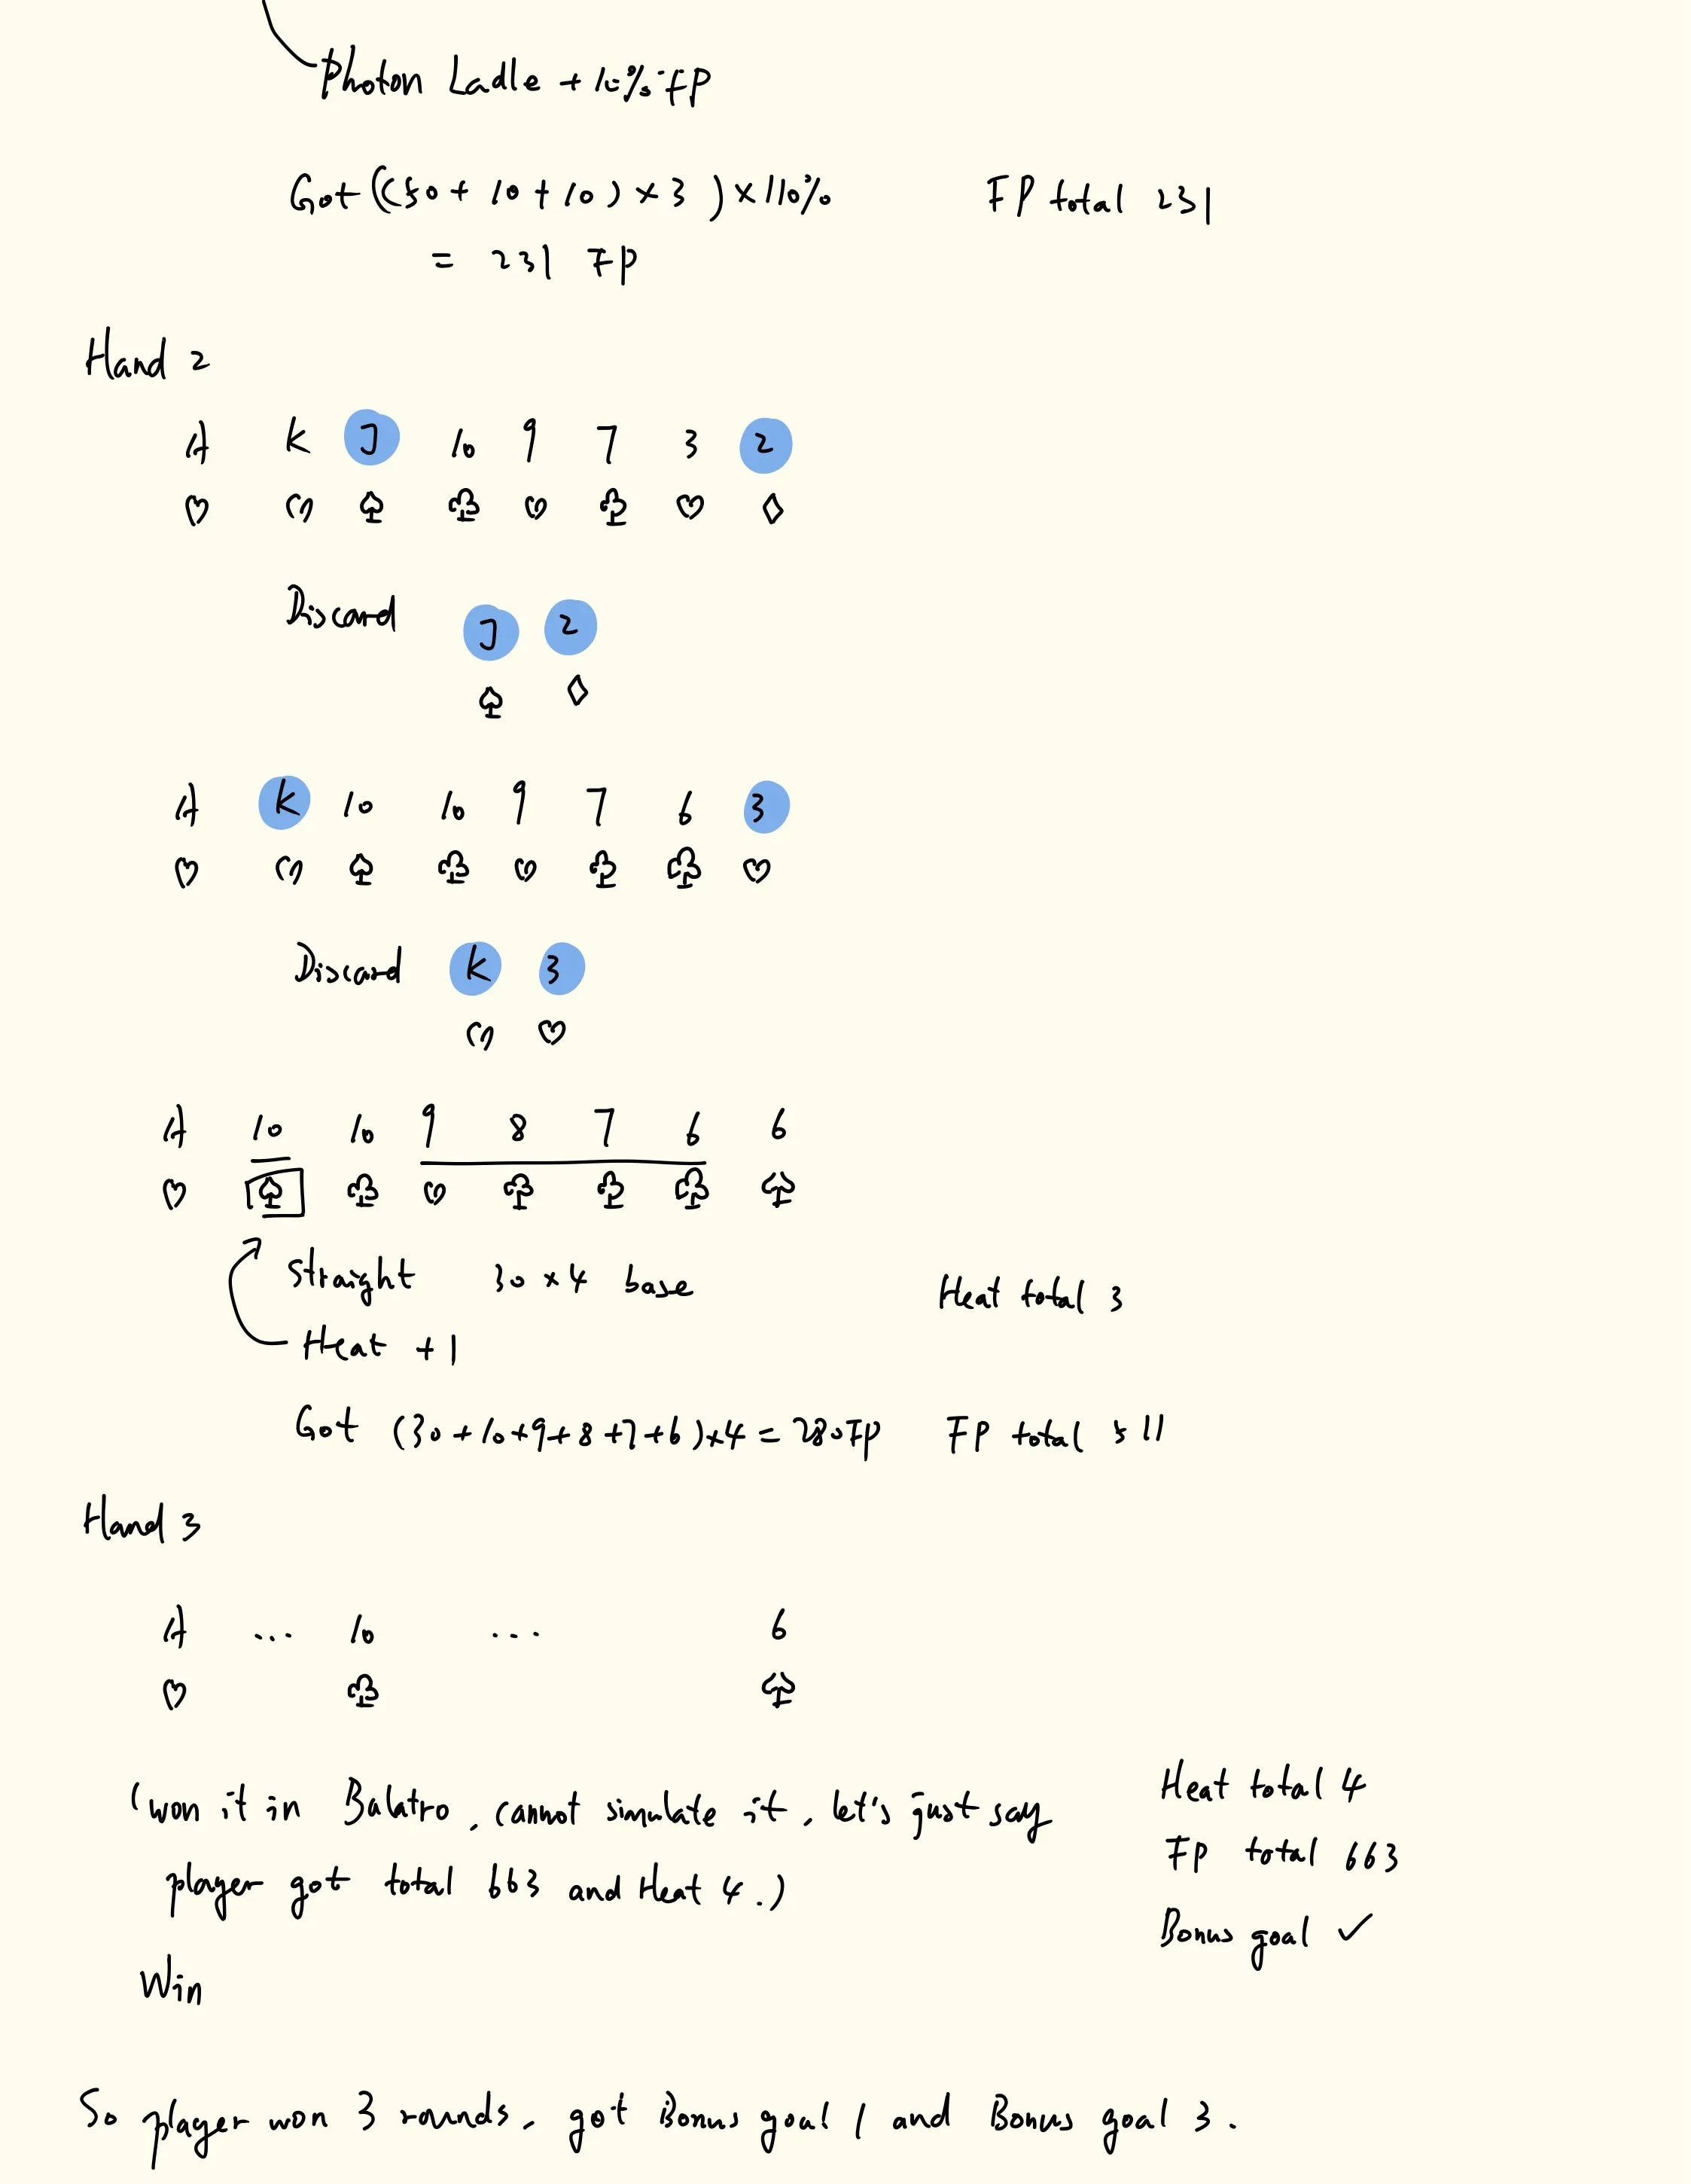 Photon Ladle + 10% FP
Got ((50 + 10 + 10) × 3) × 110% FP total 231
= 231 FP
Hand 2
A K J 10 9 7 3 2
♡ ♡ ♤ ♧ ♡ ♧ ♡ ♢
Discard J 2
♤ ♢
A K 10 10 9 7 6 3
♡ ♡ ♤ ♧ ♡ ♧ ♧ ♡
Discard K 3
♡ ♡
A 10 10 9 8 7 6 6
♡ ♤ ♧ ♡ ♧ ♧ ♧ ♤
Straight 30 × 4 base Heat total 3
Heat +1
Got (30+10+9+8+7+6)×4 = 280 FP FP total 511
Hand 3
A ... 10 ... 6
♡ ♧ ♤
(won it in Balatro, cannot simulate it, let's just say
player got total 663 and Heat 4.)
Heat total 4
FP total 663
Bonus goal ✓
Win
So player won 3 rounds, got Bonus goal 1 and Bonus goal 3.